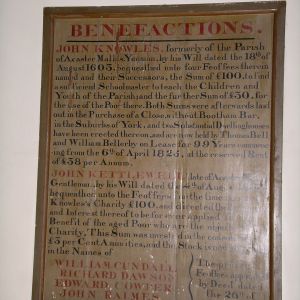 BENEFACTIONS.
JOHN KNOWLES, formerly of the Parish
of Acaster Malbis, Yeoman, by his Will dated the 18th of
August 1603, bequeathed unto four Feoffees therein
named and their Successors, the Sum of £100, to find
a sufficient Schoolmaster to teach the Children and
Youth of the Parish, and the further Sum of £50, for
the use of the Poor there. Both Sums were afterwards laid
out in the Purchase of a Close, without Bootham Bar,
in the Suburbs of York, and two Substantial Dwellinghouses
have been erected thereon, and are now held by Thomas Bell
and William Bellerby on Lease for 99 Years commen-
cing from the 6th of April 1825, at the reserved Rent
of £58 per Annum.
JOHN KETTLEWELL, late of Acaster
Gentleman, by his Will dated the of August
bequeathed unto the Feoffees for the time
Knowles's Charity £100, and directed the
and Interest thereof to be for ever applied
Benefit of the aged Poor who are the
Charity. This Sum was invested in the
£5 per Cent Annuities, and the Stock is now
in the Names of
WILLIAM CUNDALL
RICHARD DAWSON
EDWARD COWPER
JOHN
The present
Feoffees appointed
by Deed dated
the 20th of